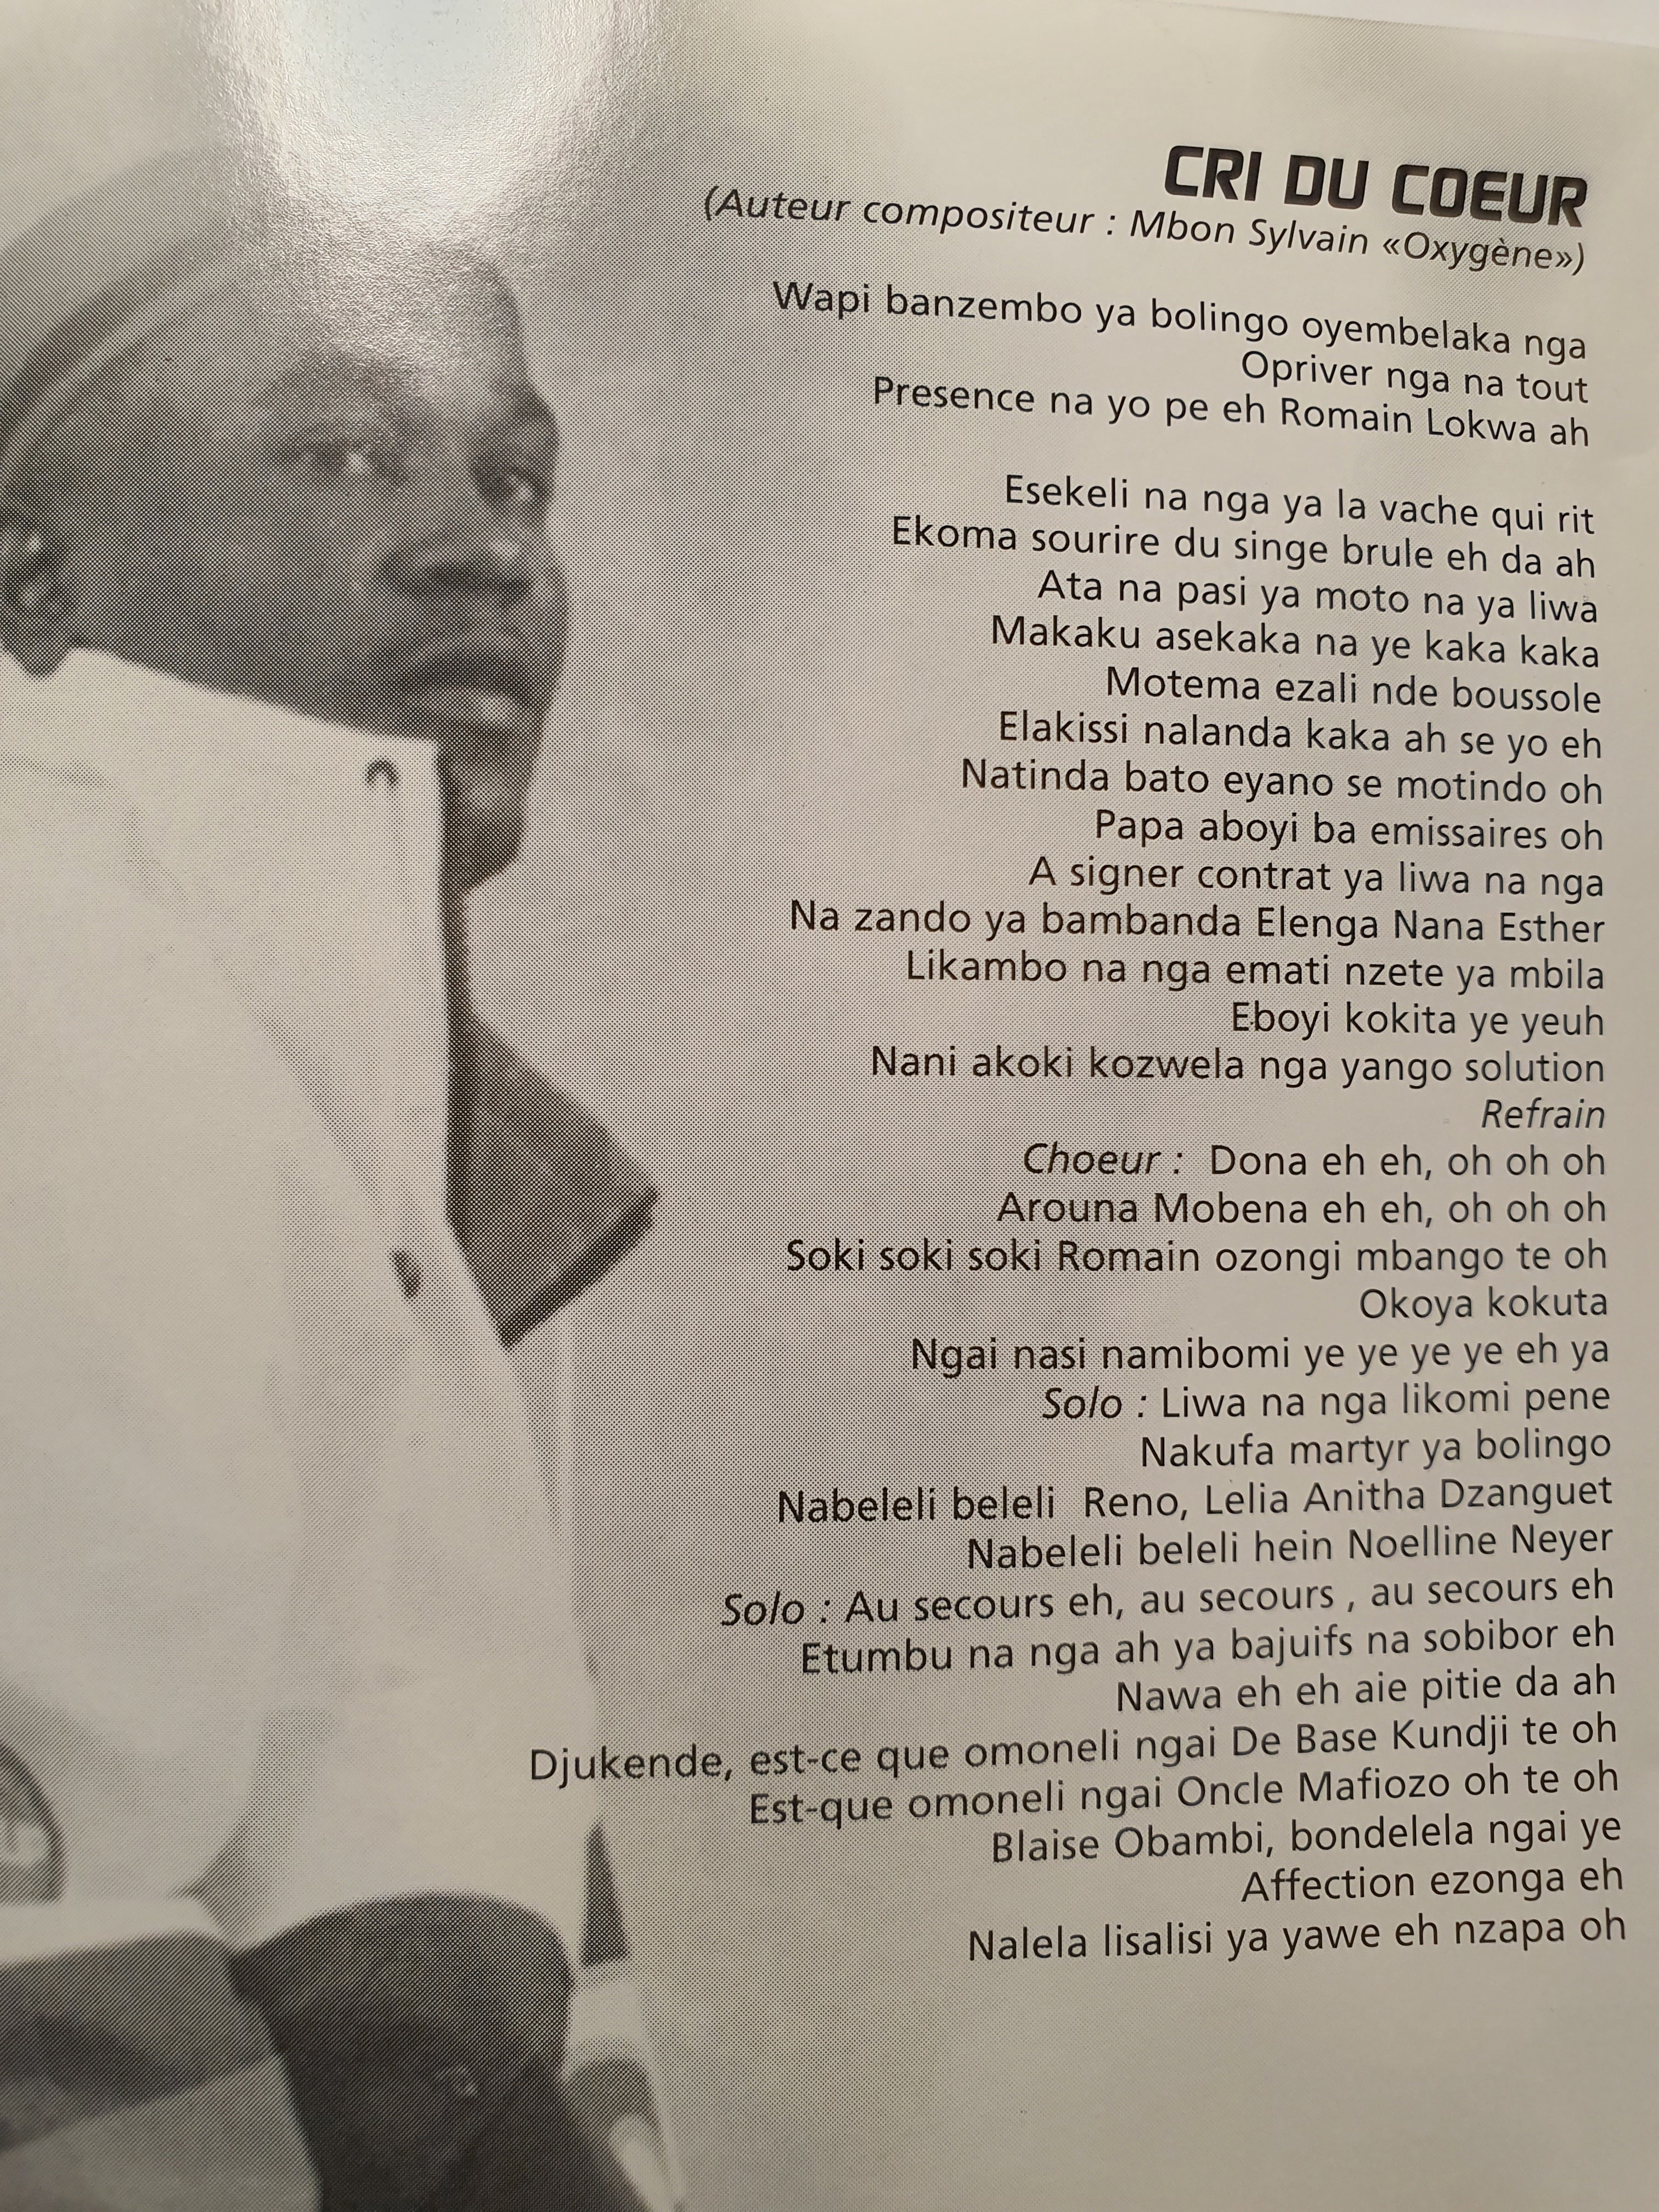 CRI DU COEUR
(Auteur compositeur : Mbon Sylvain «Oxygène»)
Wapi banzembo ya bolingo oyembelaka nga
Opriver nga na tout
Presence na yo pe eh Romain Lokwa ah
Esekeli na nga ya la vache qui rit
Ekoma sourire du singe brule eh da ah
Ata na pasi ya moto na ya liwa
Makaku asekaka na ye kaka kaka
Motema ezali nde boussole
Elakissi nalanda kaka ah se yo eh
Natinda bato eyano se motindo oh
Papa aboyi ba emissaires oh
A signer contrat ya liwa na nga
Na zando ya bambanda Elenga Nana Esther
Likambo na nga emati nzete ya mbila
Eboyi kokita ye yeuh
Nani akoki kozwela nga yango solution
Refrain
Choeur : Dona eh eh, oh oh oh
Arouna Mobena eh eh, oh oh oh
Soki soki soki Romain ozongi mbango te oh
Okoya kokuta
Ngai nasi namibomi ye ye ye ye eh ya
Solo : Liwa na nga likomi pene
Nakufa martyr ya bolingo
Nabeleli beleli Reno, Lelia Anitha Dzanguet
Nabeleli beleli hein Noelline Neyer
Solo : Au secours eh, au secours , au secours eh
Etumbu na nga ah ya bajuifs na sobibor eh
Nawa eh eh aie pitie da ah
Djukende, est-ce que omoneli ngai De Base Kundji te oh
Est-que omoneli ngai Oncle Mafiozo oh te oh
Blaise Obambi, bondelela ngai ye
Affection ezonga eh
Nalela lisalisi ya yawe eh nzapa oh